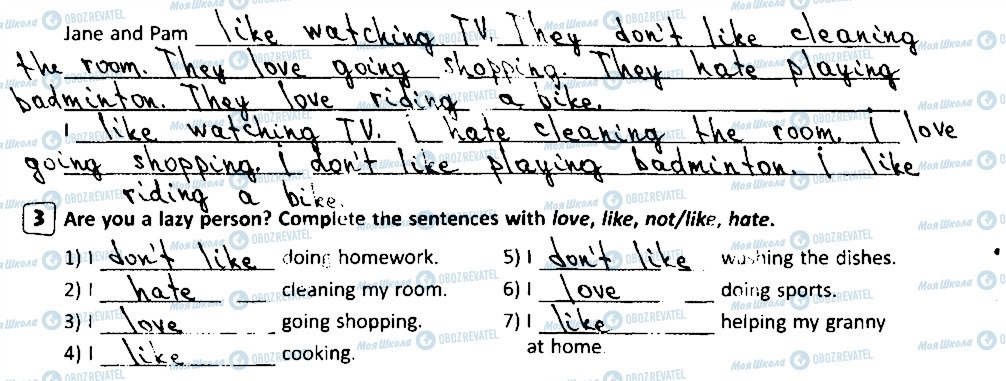 Jane and Pam like watching TV. They don't like cleaning
the room. They love going shopping. They hate playing
badminton. They love riding a bike.
I like watching TV. I hate cleaning the room. I love
going shopping. I don't like playing badminton. I like
riding a bike.
3 Are you a lazy person? Complete the sentences with love, like, not/like, hate.
1) I don't like doing homework.
2) I hate cleaning my room.
3) I love going shopping.
4) I like cooking.
5) I don't like washing the dishes.
6) I love doing sports.
7) I like helping my granny
at home.
Моя Школа OBOZREVATEL